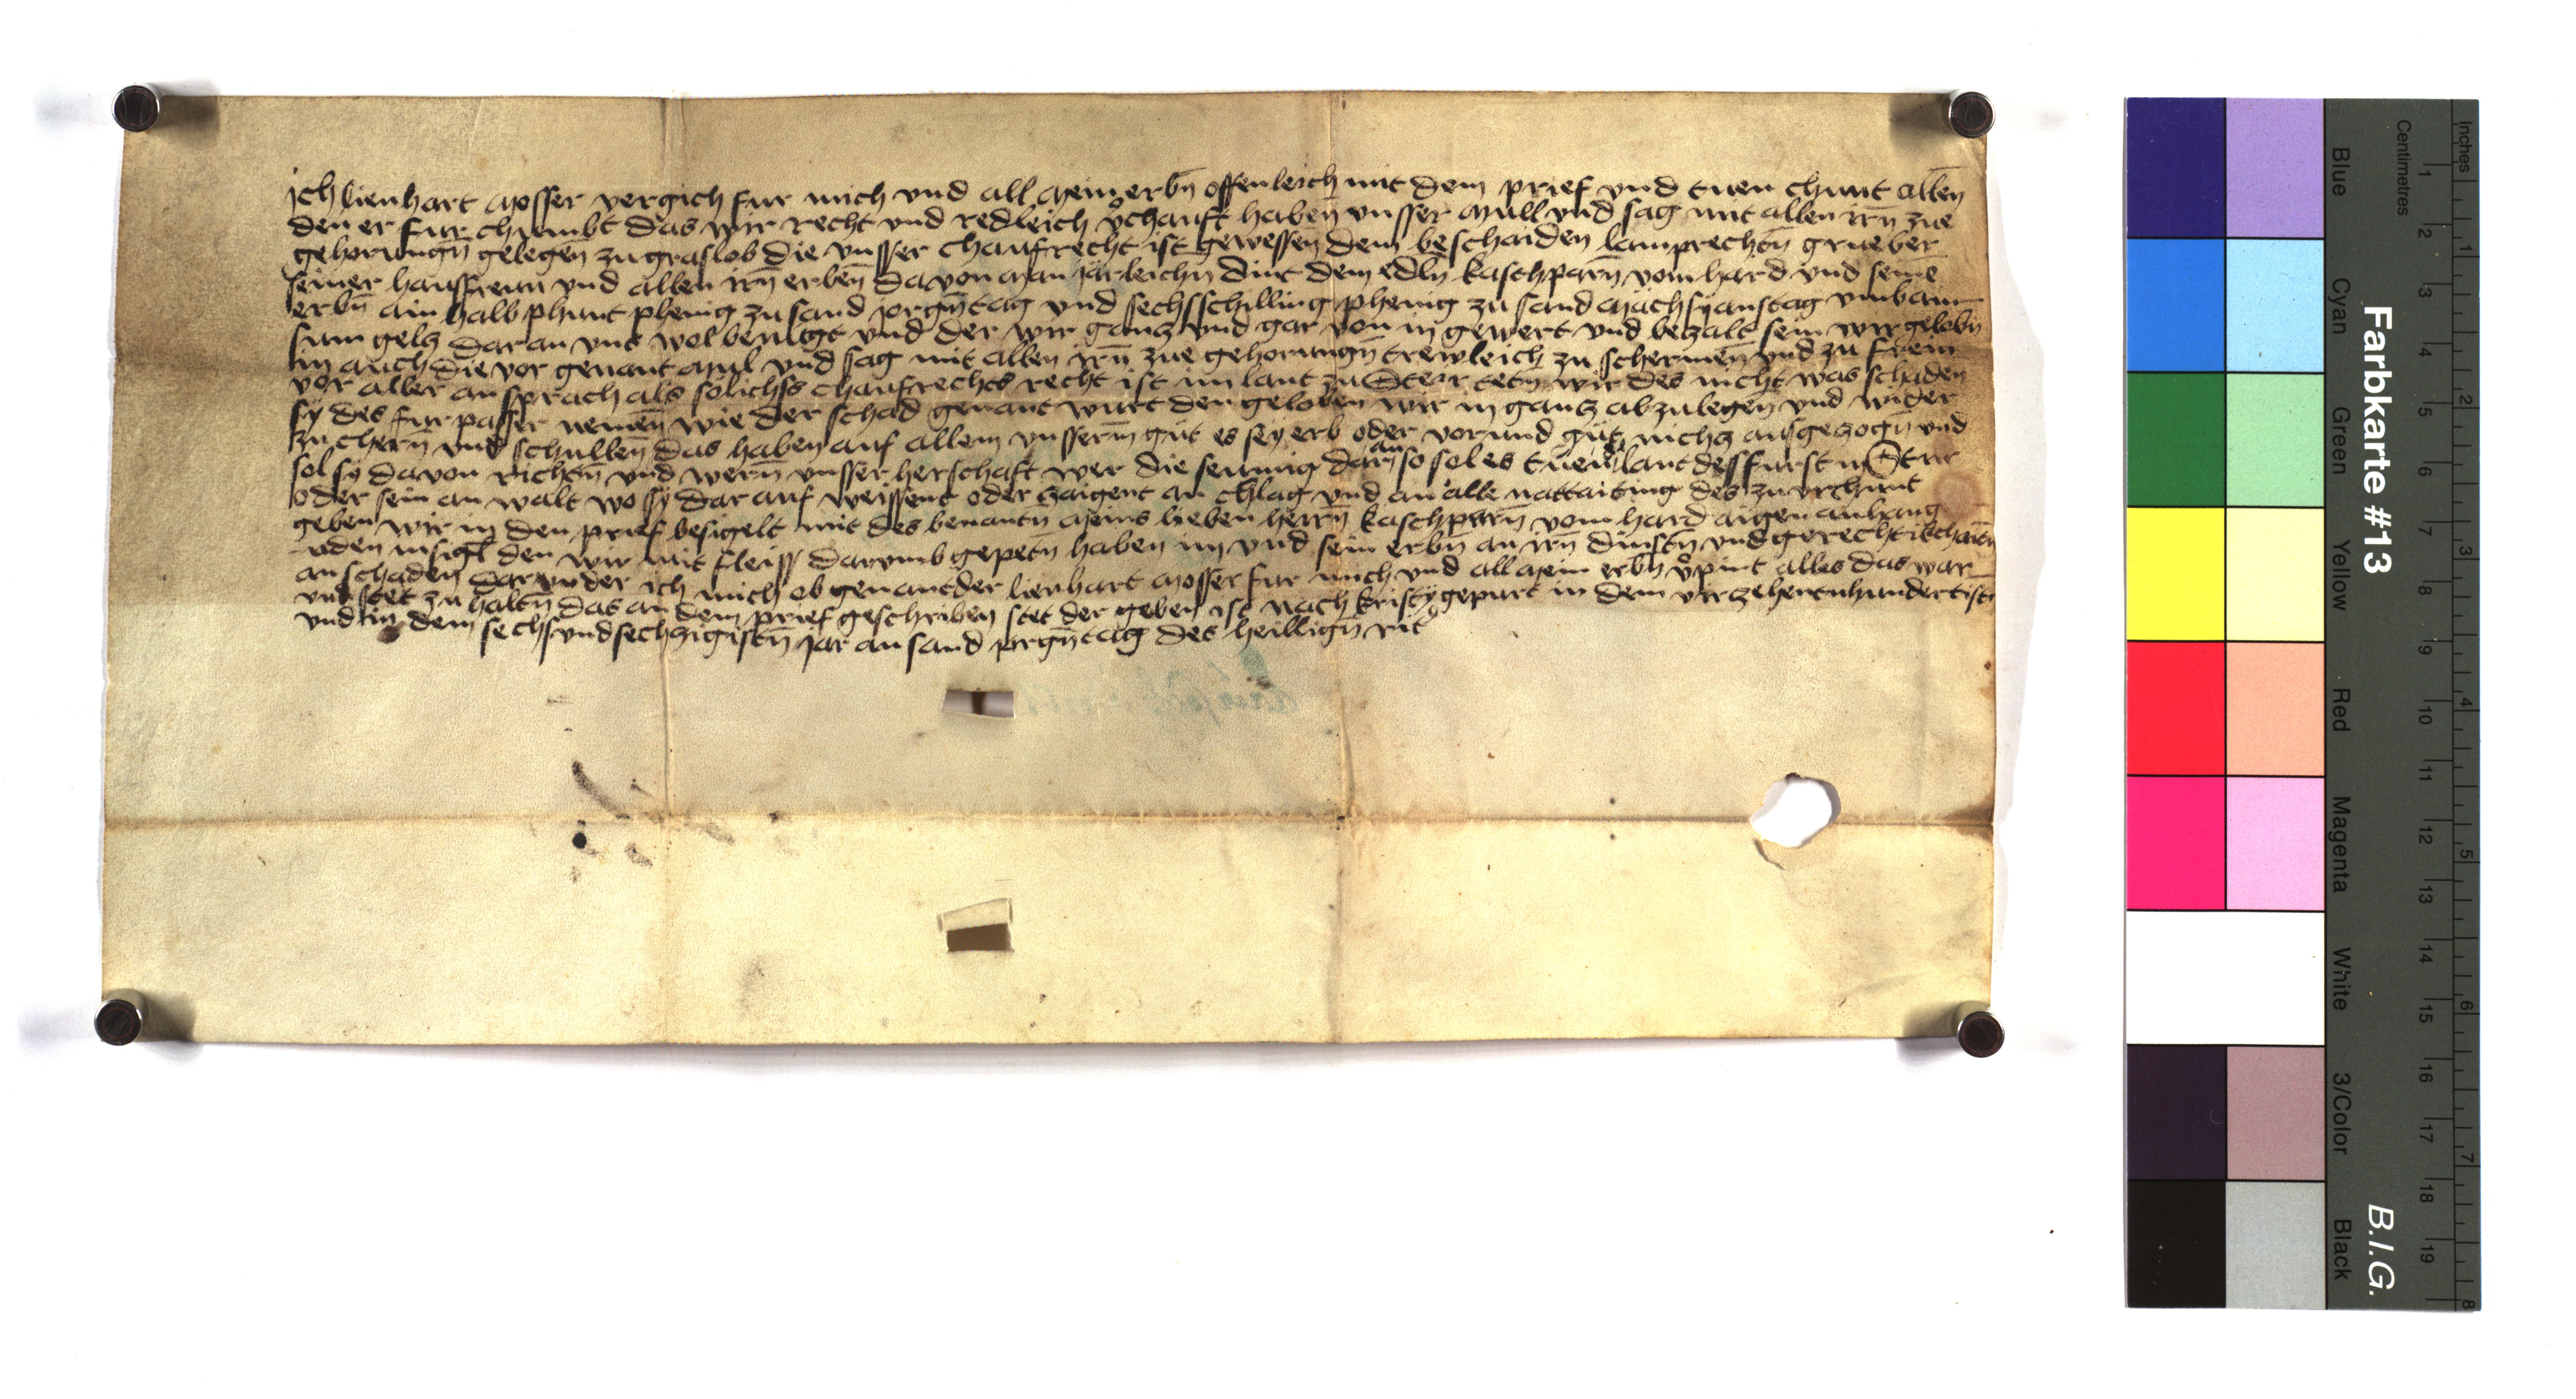 Ich lienhart mosser vergich fur mich vnd all mein erbn̄ offenleich mit dem prief vnd tuen chunt allen̄
den er fur chumbt das wir recht vnd redleich vͦchauft haben vnsser mull vnd sag mit allen irn̄ zue
gehorungn̄ gelegen̄ zu graslob die vnsser chaufrecht ist gewessen̄ dem beschaiden lamprechtn̄ grueber
seiner hausfrenn vnd allen irn̄ erben̄ da von man järleichn dint dem edln̄ kaschparn̄ vom hard vnd seine̅
erbn̄ ain halb phunt phenig zu sand jorgn̄tag vnd sechsschilling phenig zu sand mächsÿanstag vmb ain
sum gelz dar an vns wol benügt vnd der wir ganz vnd gar von in gewert vnd bezalt sein wir gelobn̄
in auch die vor genant mul vnd sag mit allen irn̄ zue gehorungn̄ trewleich zu schermen̄ vnd zu frein
vor aller an sprach als sölichss chaufrechts recht ist im lant zu Steir tetn̄ wir des nicht was schaden
sÿ des fur passer nemen̄ wie der schad genant wurt den geloben wir in ganz abzulegen vnd wider
zu chern̄ vnd schullen̄ das haben auf allem vnsserm̄ güt es sey erb oder vorund güt nichz ausgezogn̄ vnd
sol sÿ davon richtn̄ vnd wern̄ vnsser herschaft wer die seinnig dan̄ so sol es tuen d lantdesfurst in Steir
oder sein an walt wo sÿ dar auf weissent oder zaigent an chlag vnd an alle nattaiting des zu vrchunt
geben wir in den prief besigelt mit des benantn̄ meins lieben herrn̄ kaschparn̄ vom hard aigen anhang
uden insigl den wir mit fleiss darvmb gepetn̄ haben im vnd sein erbn̄ an irn̄ dinstn̄ vnd gerechtikchaitn̄
an schaden dar vnder ich mich ob genantder lienhart mosser fur mich vnd all mein erbn̄ vͦpint alles das war
vnd stet zu haltn̄ das an dem prief geschriben stet der geben ist nach kristÿ gepurt in dem virzehentnhundertistn̄
vnd in dem sechsvndsechzigistn̄ jar an sand jorgn̄tag des heillign̄ rit
Farbkarte #13
B.I.G.
Centimetres
Inches
Blue
Cyan
Green
Yellow
Red
Magenta
White
3/Color
Black
1 2 3 4 5 6 7 8 9 10 11 12 13 14 15 16 17 18 19
1 2 3 4 5 6 7 8